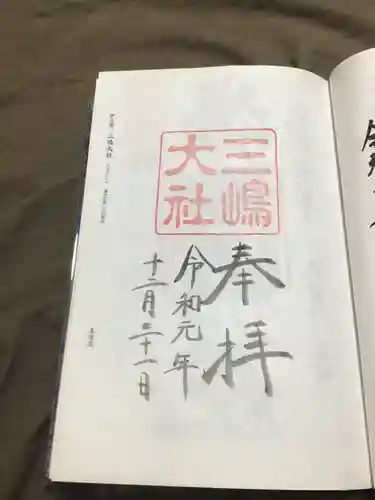 三嶋
大社
奉拝
令和元年
十二月二十一日
三嶋大社